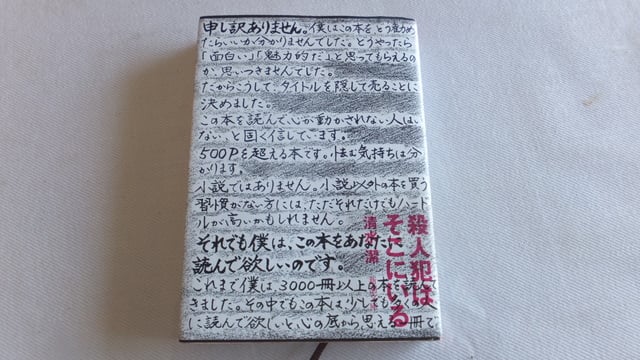 申し訳ありません。僕はこの本を、どう勧め
たらいいか分かりませんでした。どうやったら
「面白い」「魅力的だ」と思ってもらえるの
か、思いつきませんでした。
だからこうして、タイトルを隠して売ることに
決めました。
この本を読んで心が動かされない人はい
ない、と固く信じています。
500Pを超える本です。怯む気持ちは分
かります。
小説ではありません。小説以外の本を買う
習慣がない方には、ただそれだけでもハード
ルが高いかもしれません。
それでも僕は、この本をあなたに
読んで欲しいのです。
これまで僕は3000冊以上の本を読んで
きました。その中でもこの本は、少しでも多くの人
に読んで欲しいと心の底から思える一冊で
殺人犯は
そこにいる
清水潔